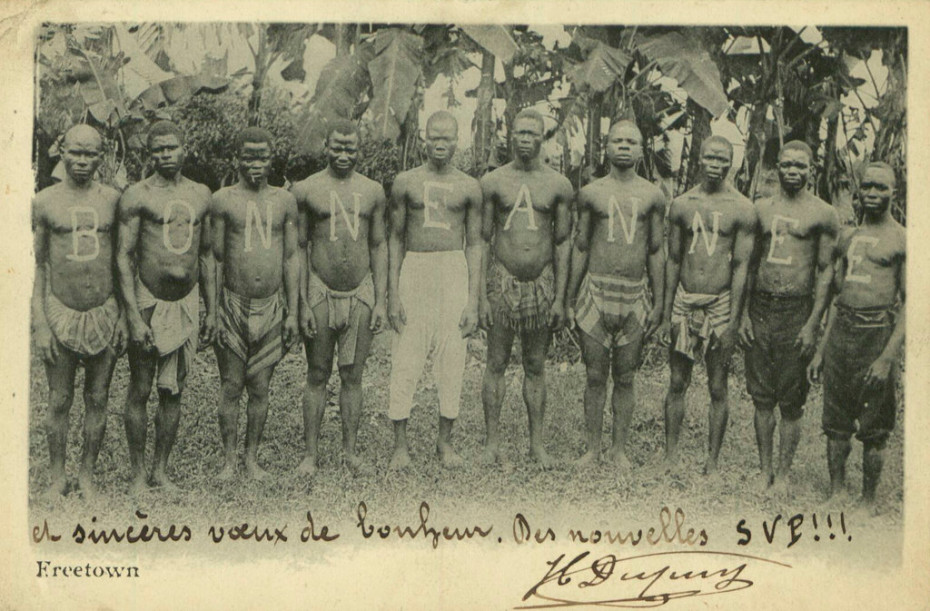 BONNE ANNEE
et sincères vœux de bonheur. Des nouvelles SVP!!!
Freetown
H Dupuy